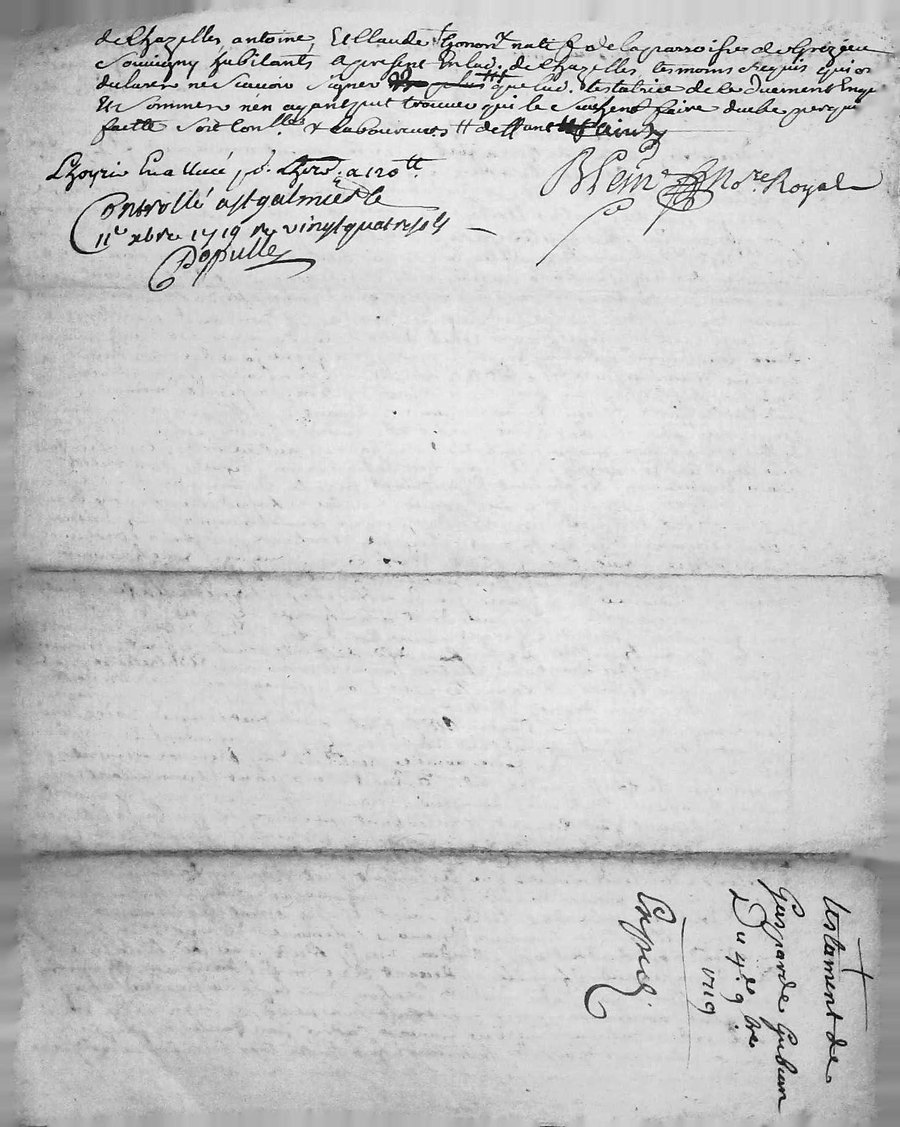 de Chazelles antoine, Et Claude natif de la parroisse de Grézieu
Souvigny habitants a present En lad. de Chazelles, tesmoins requis qui ont
declaré ne scavoir signer que lad. testatrice de ce duement Enqu
Et sommer nen ayant peut trouver qui le sceussent faire dube perquis
faitte soit Conlles & Laboureurs
En a Mieé a 120 tt
Controllé a St galmier le
11e xbre 1719 re vingt quatre sols
Populle
No.re Royal
testament de
Gasparde Gubian
Du 4e 9bre
1719
Expedié